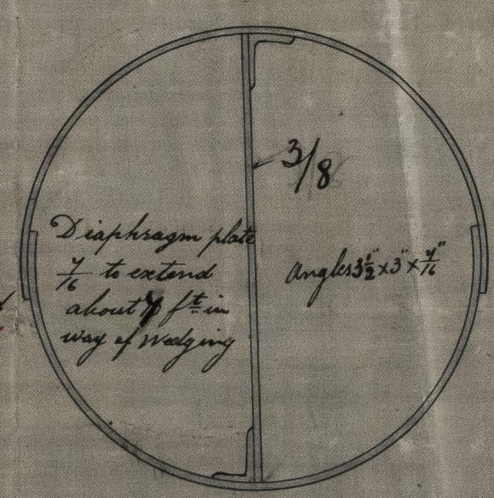 3/8
Diaphragm plate
7/16 to extend
about 7 ft in
way of wedging
Angles 3½" x 3" x 7/16"